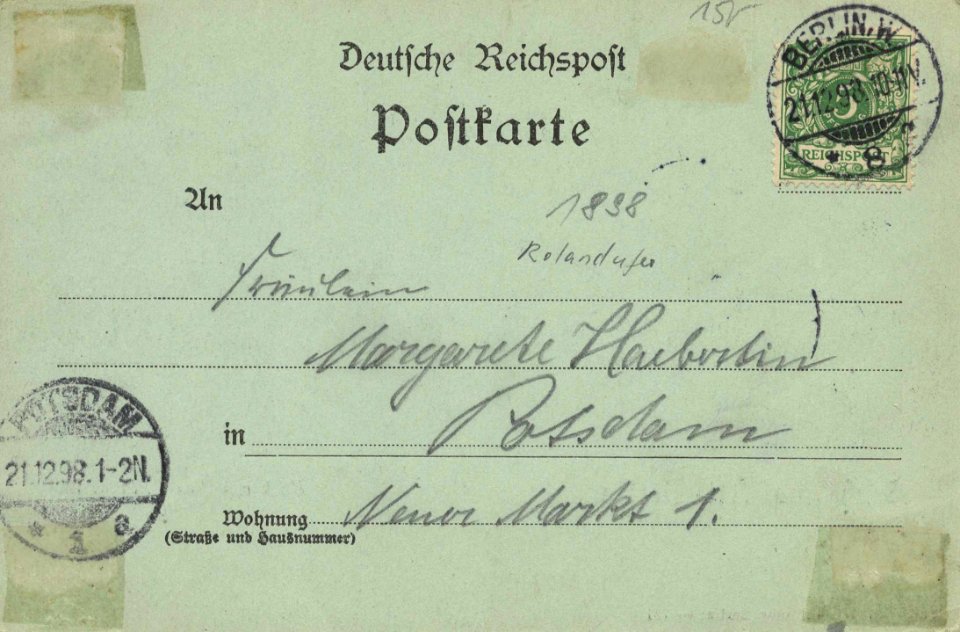 15V
Deutsche Reichspost
Postkarte
BERLIN, W
21.12.98. 10-11V.
* 8 a
5
REICHSPOST
An
1898
Rolandufer
Fräulein
Margarete Haeberlin
in Potsdam
Wohnung Neuer Markt 1.
(Straße und Hausnummer)
POTSDAM
21.12.98. 1-2N.
* 1 a